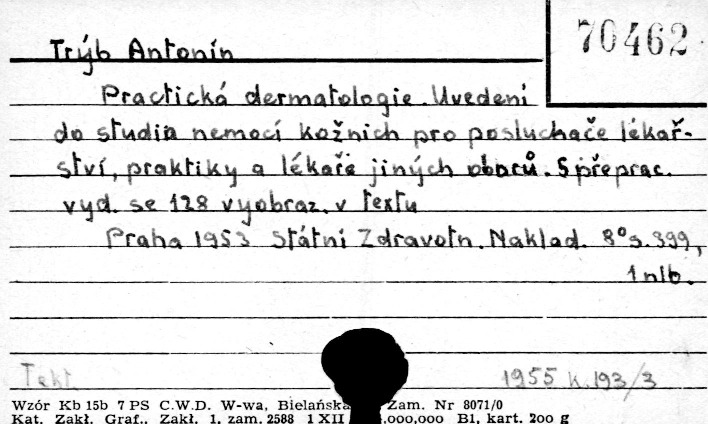 70462
Trýb Antonín
Practická dermatologie. Uvedení
do studia nemocí kožních pro posluchače lékař-
ství, praktiky a lékaře jiných oborů. 5 přeprac.
vyd. se 128 vyobraz. v textu
Praha 1953 Státní Zdravotn. Naklad. 8° s. 399,
1 nlb.
Tekt.
1955 K. 193/3
Wzór Kb 15b 7 PS C.W.D. W-wa, Bielańska Zam. Nr 8071/0
Kat. Zakł. Graf., Zakł. 1. zam. 2588 1 XII 000,000 Bl. kart. 200 g